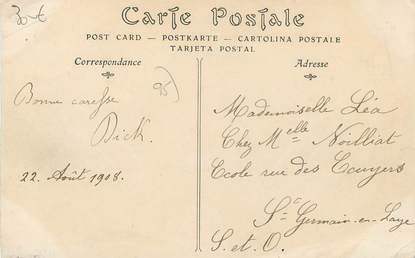 30€
Carte Postale
POST CARD — POSTKARTE — CARTOLINA POSTALE
TARJETA POSTAL
Correspondance
Adresse
95)
Bonne caresse
Dick.
22. Août 1908.
Mademoiselle Léa
Chez Melle Noilliat
Ecole rue des Ecuyers
St Germain-en-Laye
S. et O.